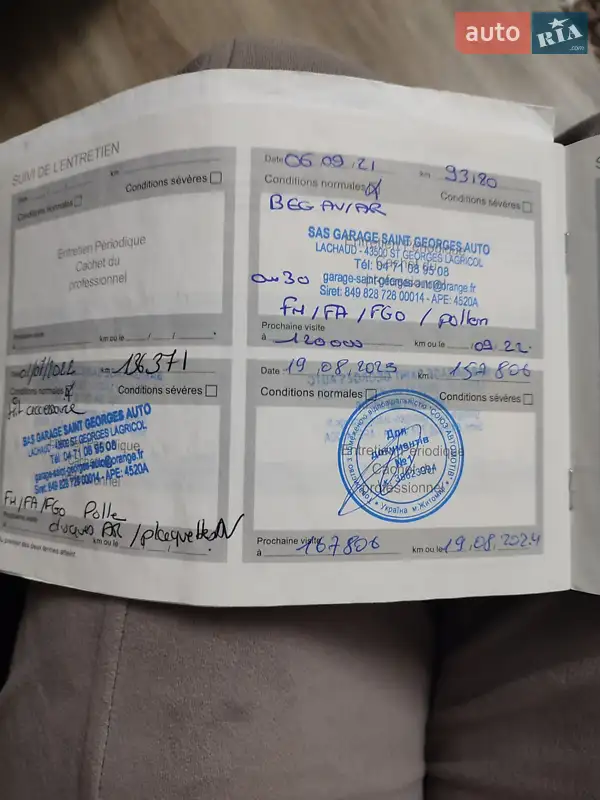 auto RIA
.com
SUIVI DE L'ENTRETIEN
km
Conditions normales
Conditions sévères
Entretien Périodique
Cachet du
professionnel
km ou le
Date 06 09 21 km 93120
Conditions normales
Conditions sévères
SAS GARAGE SAINT GEORGES AUTO
LACHAUD - 43500 ST GEORGES LAGRICOL
Tél: 04 71 08 95 08
garage-saint-georges-auto@orange.fr
Siret: 849 828 728 00014 - APE: 4520A
FH/FA/FGO / pollen
Prochaine visite
à 120000 km ou le 09.22
km 136371
Conditions normales
Conditions sévères
accessoire
SAS GARAGE SAINT GEORGES AUTO
LACHAUD - 43500 ST GEORGES LAGRICOL
Tél: 04 71 08 95 08
garage-saint-georges-auto@orange.fr
Siret: 849 828 728 00014 - APE: 4520A
FH/FA/FGO Polle
disques AR / plaquettes
km ou le
Date 19.08.2023 km 157806
Conditions normales
Conditions sévères
Entretien Périodique
Cachet du
professionnel
Для
документів
№1
Україна м.Житомир
Prochaine visite
à 167806 km ou le 19.08.2024